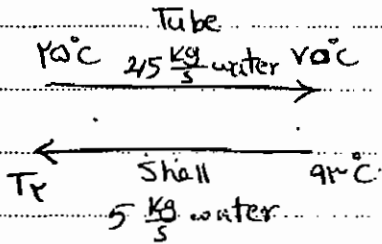 Tube
۲۵°C 2/5 kg/s water ۷۵°C
T۲ Shell ۹۳°C
5 kg/s water